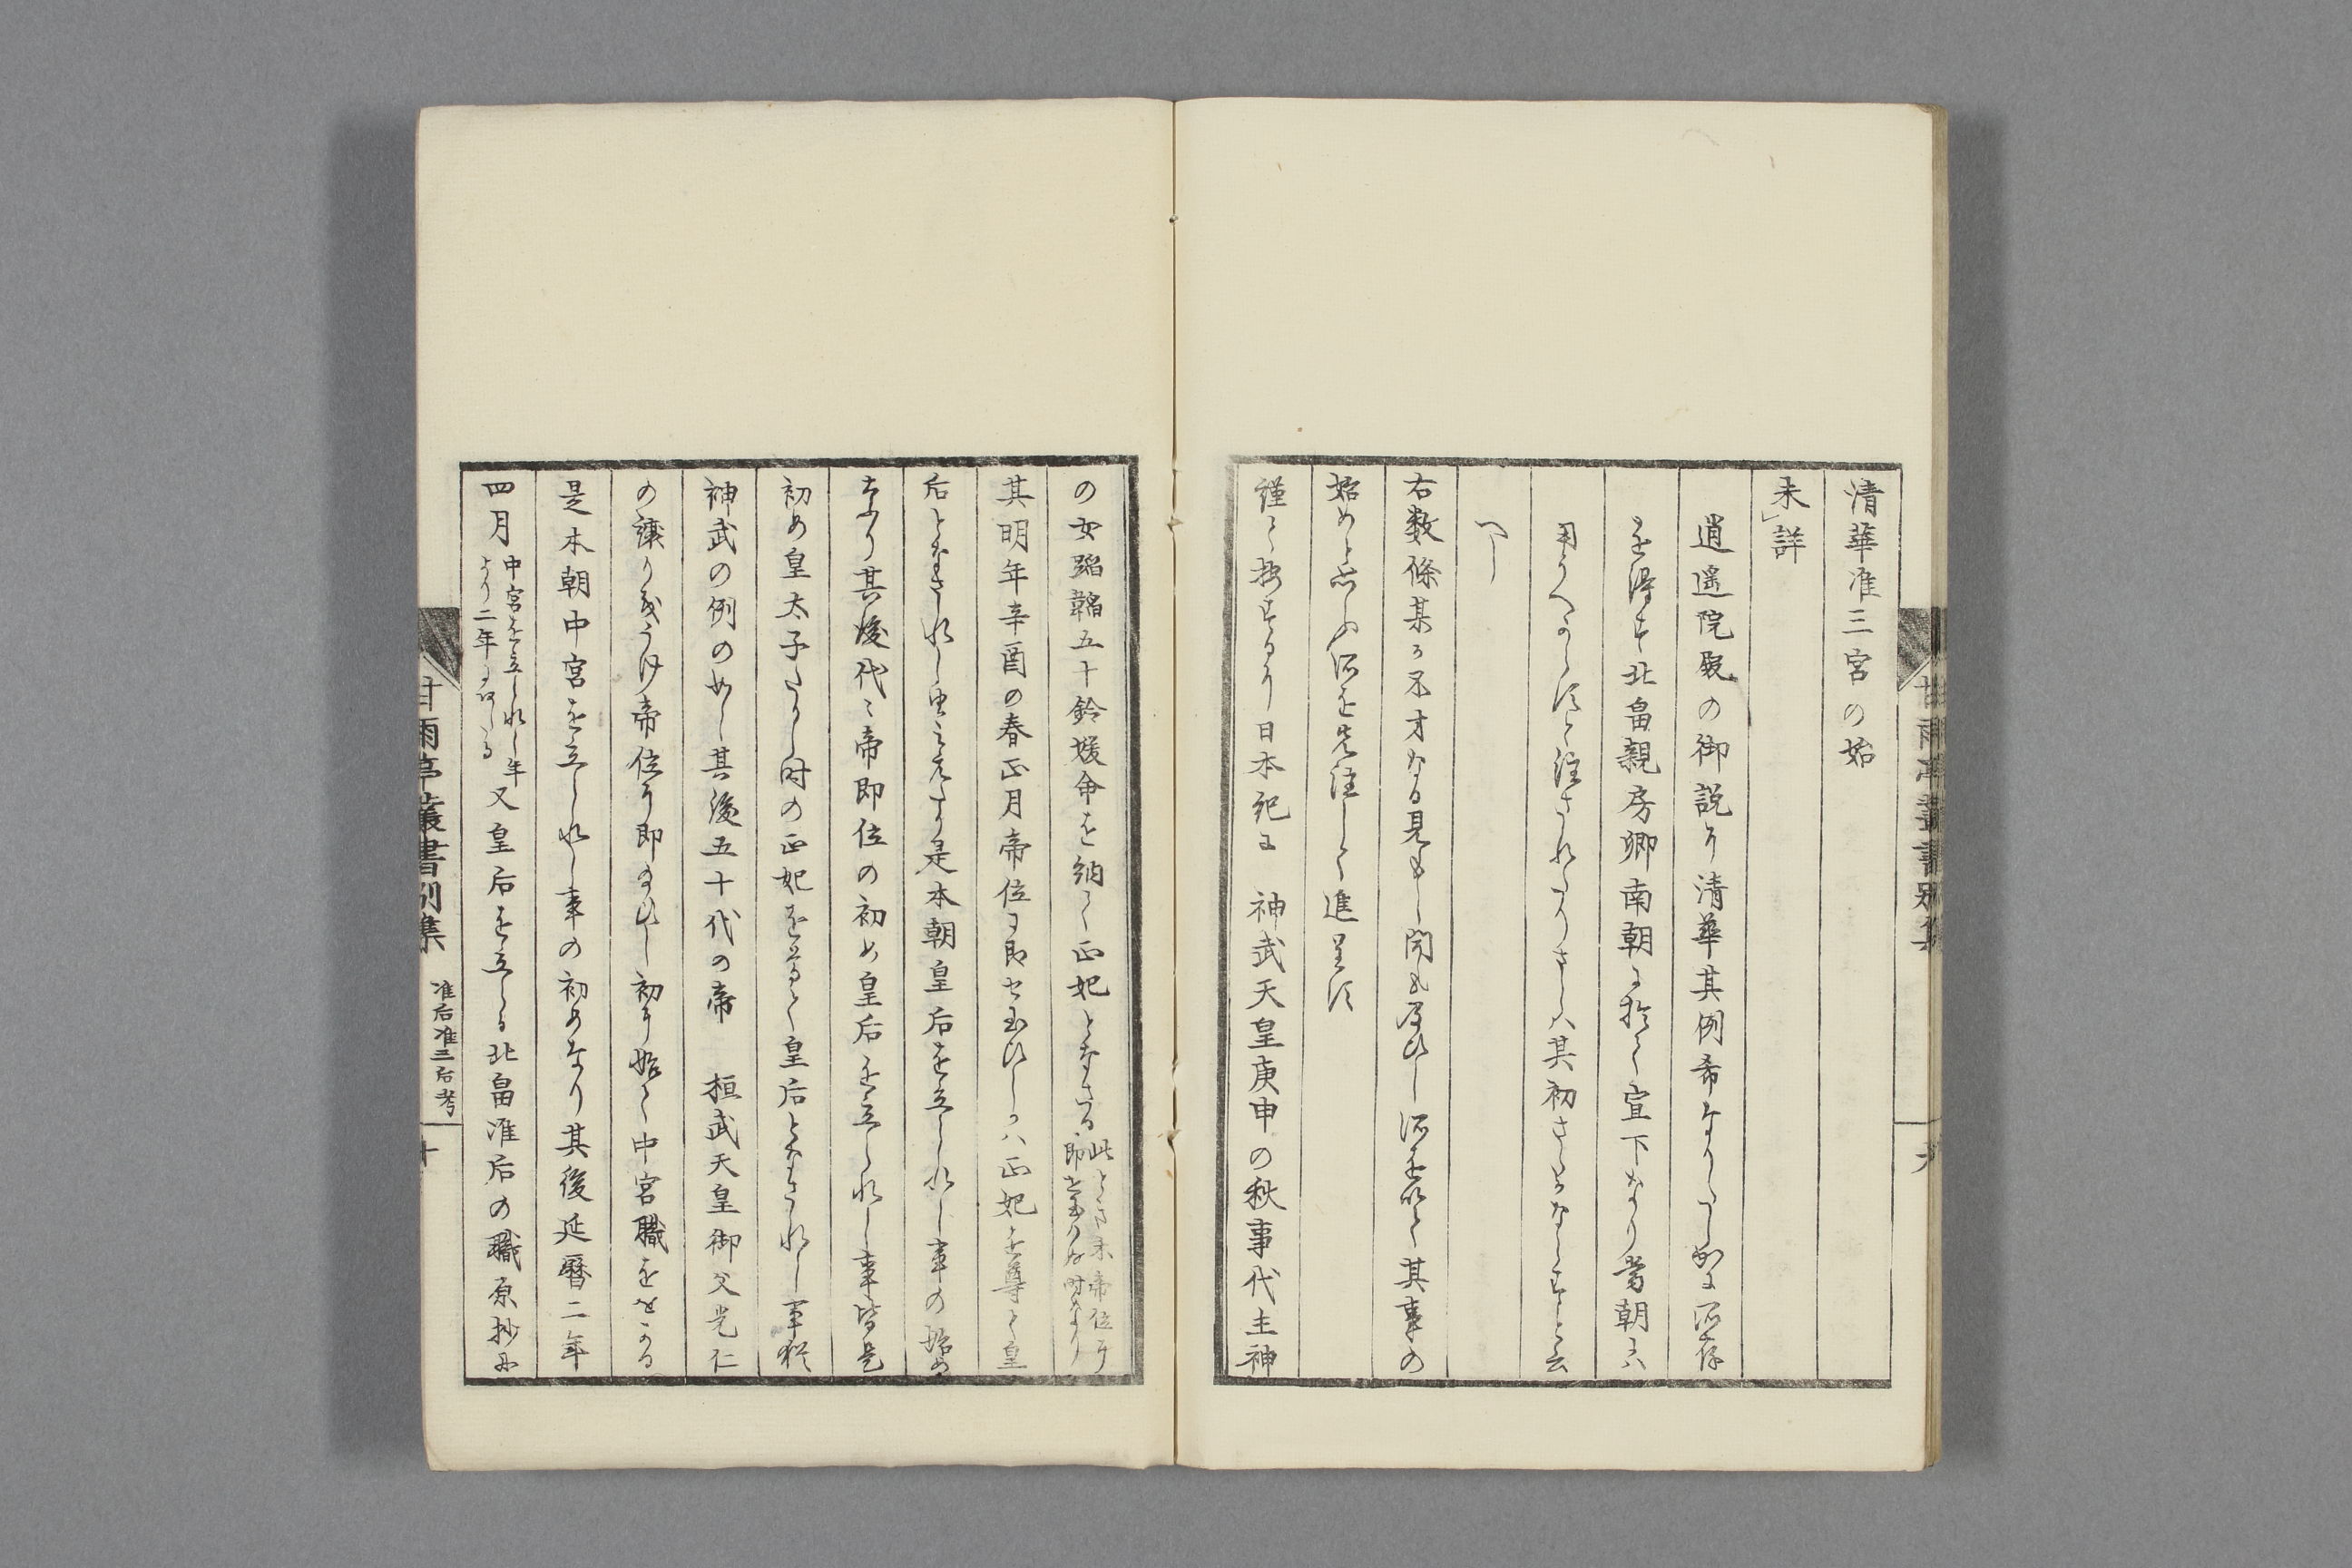 清華准三宮の始
未レ詳
逍遥院殿の御説に清華其例希なりしかに所存
を得す北畠親房卿南朝に於て宣下なり当朝には
用うへからすと注されたりされは其初さたなしと云
へし
右数條某か不才なる見し聞も及ひし所を以て其事の
始めと思ふ所を先注して進呈す
謹て按するに日本紀に　神武天皇庚申の秋事代主神
の女蹈韛五十鈴媛命を納て正妃となさる
此ときは未帝位に
即せ玉はぬ時なり
其明年辛酉の春正月帝位に即せ玉ひしかは正妃を尊て皇
后となされし由みえたり是本朝皇后を立られし事の始め
なり其後代々帝即位の初め皇后を立られし事皆是
初め皇太子たりし時の正妃を尊て皇后となされし事猶
神武の例のめし其後五十代の帝　桓武天皇御父光仁
の譲りをうけ帝位に即給ひし初に始て中宮職をおかる
是本朝中宮を立られし事の初めなり其後延暦二年
四月
中宮を立られし年
より二年に当る
又皇后を立らる北畠准后の職原抄に
甘雨亭叢書別集　准后准三后考　十
甘雨亭叢書別集